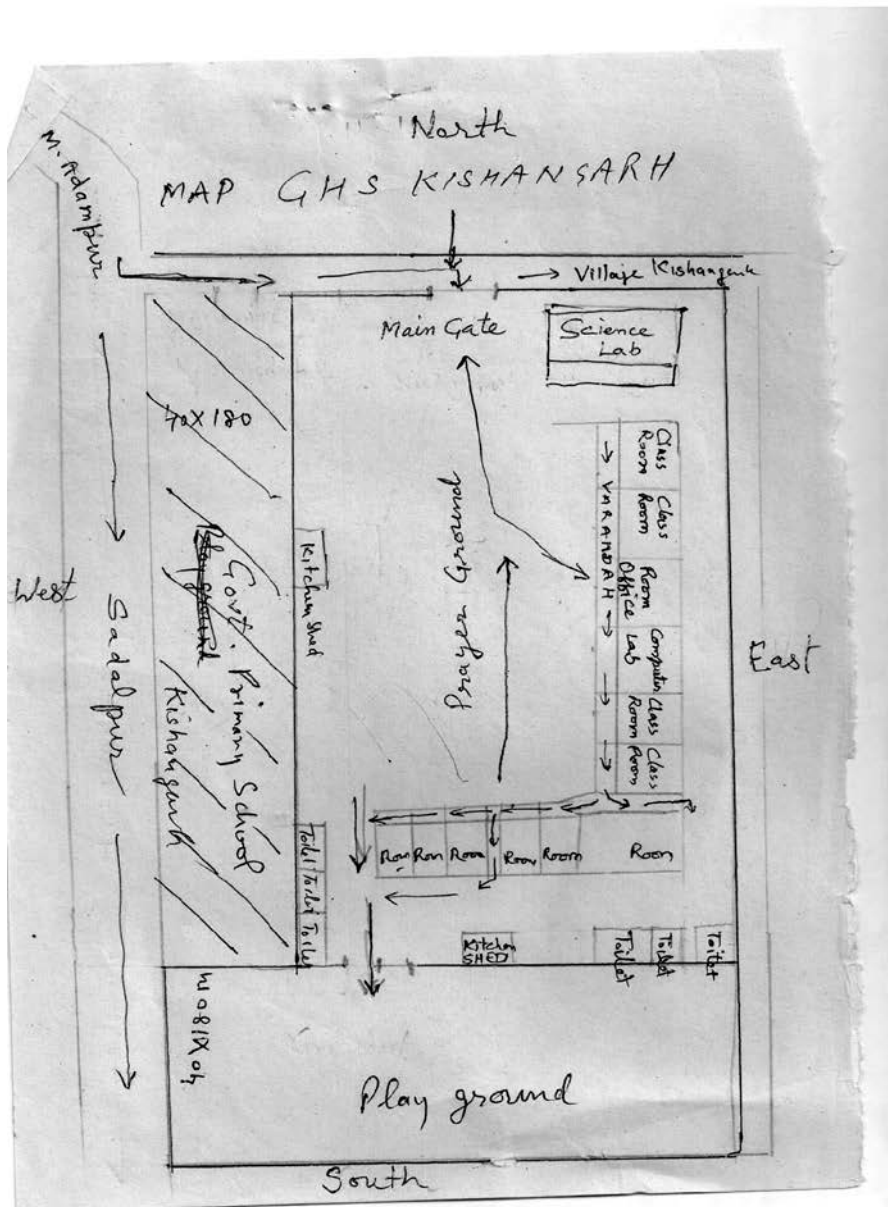 North
MAP GHS KISHANGARH
M. Adampur
→ Village Kishangarh
Main Gate
Science
Lab
40X180
Class
Room
Class
Room
Room
Office
Computer
Lab
Class
Room
Class
Room
→ VARANDAH → → →
Prayer Ground
Kitchen Shed
Govt. Primary School
Kishangarh
West
Sadalpur
East
Toilet
Toilet
Toilet
Room
Room
Room
Kitchen
SHED
Toilet
Toilet
Toilet
40X180 m
Play ground
South